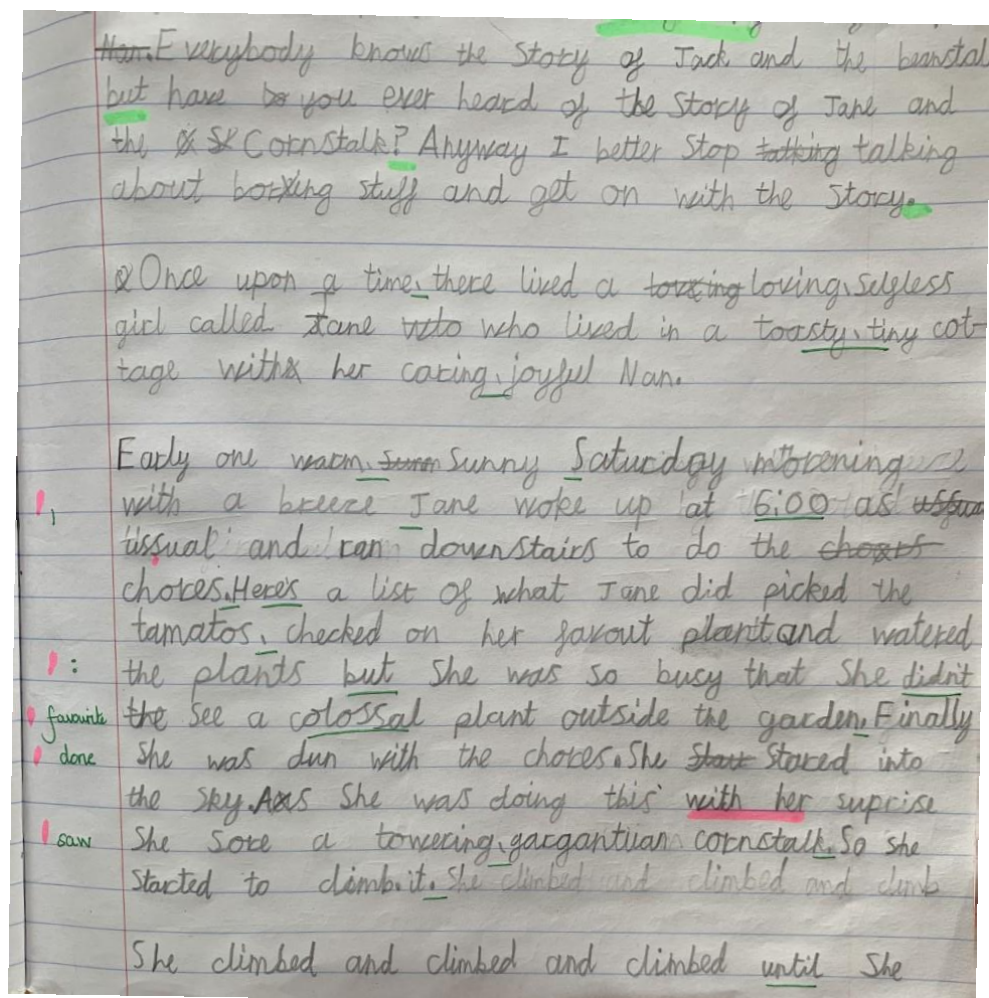 Nan. Everybody knows the Story of Jack and the beanstal
but have you ever heard of the Story of Jane and
the Cornstalk? Anyway I better Stop talking talking
about boring stuff and get on with the Story.
Once upon a time, there lived a loving, selgless
girl called Jane who who lived in a toasty, tiny cot-
tage with her caring, joyful Nan.
Early one warm, Sunny Saturday morening
with a breeze Jane woke up at 6:00 as
ussual and ran downstairs to do the
chores. Here's a list of what Jane did picked the
tamatos, checked on her favout plant and watered
:
the plants but She was so busy that She didn't
favourite
the See a colossal plant outside the garden. Finally
done
She was dun with the chores. She Start Stared into
the Sky. As She was doing this with her suprise
saw
She Sore a towering, gargantuan cornstalk. So she
Started to climb it. She climbed and climbed and climb
She climbed and climbed and climbed until She